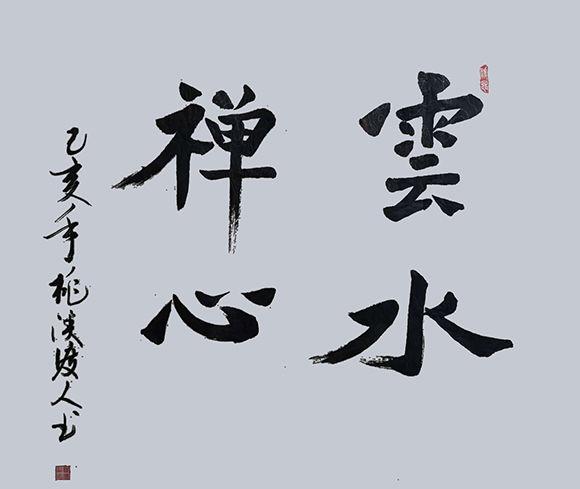 雲水
禅心
乙亥年桃淡後人书